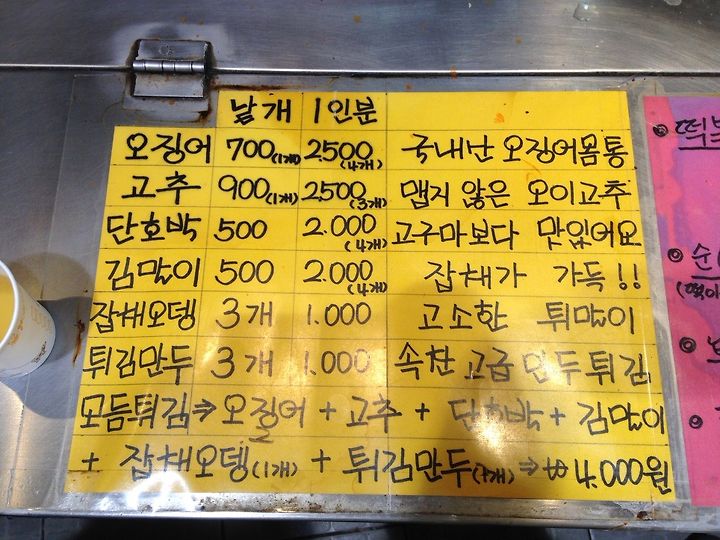 낱개 1인분
오징어 700(1개) 2500(4개) 국내난 오징어몸통
고추 900(1개) 2,500(3개) 맵지 않은 오이고추
단호박 500 2.000(4개) 고구마보다 맛있어요
김말이 500 2.000(4개) 잡채가 가득!!
잡채오뎅 3개 1.000 고소한 튀말이
튀김만두 3개 1.000 속찬 고급 만두튀김
모듬튀김⇒오징어+고추+단호박+김말이
+ 잡채오뎅(1개) + 튀김만두(1개)⇒₩4.000원